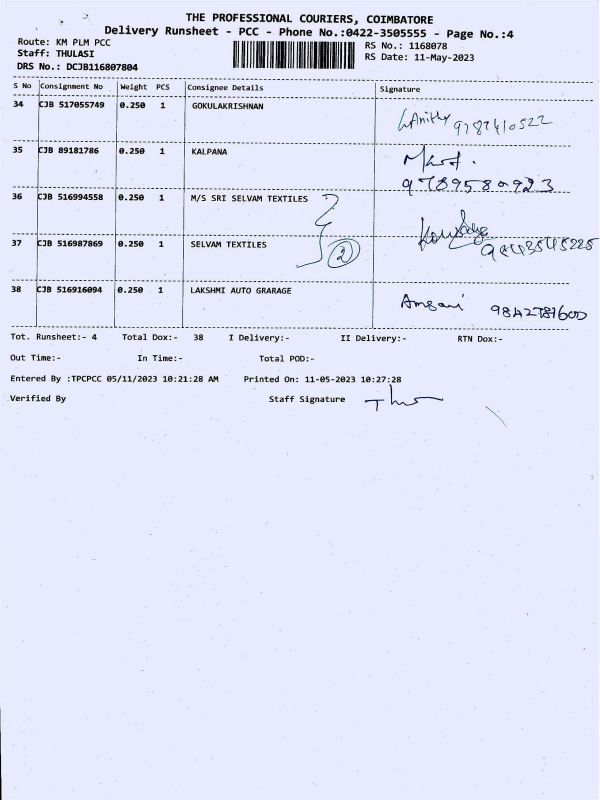 THE PROFESSIONAL COURIERS, COIMBATORE
Delivery Runsheet - PCC - Phone No.:0422-3505555 - Page No.:4
Route: KM PLM PCC RS No.: 1168078
Staff: THULASI RS Date: 11-May-2023
DRS No.: DCJB116807804
S No Consignment No Weight PCS Consignee Details Signature
34 CJB 517055749 0.250 1 GOKULAKRISHNAN
35 CJB 89181786 0.250 1 KALPANA
9789580923
36 CJB 516994558 0.250 1 M/S SRI SELVAM TEXTILES
37 CJB 516987869 0.250 1 SELVAM TEXTILES 2
38 CJB 516916094 0.250 1 LAKSHMI AUTO GRARAGE
Tot. Runsheet:- 4 Total Dox:- 38 I Delivery:- II Delivery:- RTN Dox:-
Out Time:- In Time:- Total POD:-
Entered By :TPCPCC 05/11/2023 10:21:28 AM Printed On: 11-05-2023 10:27:28
Verified By Staff Signature